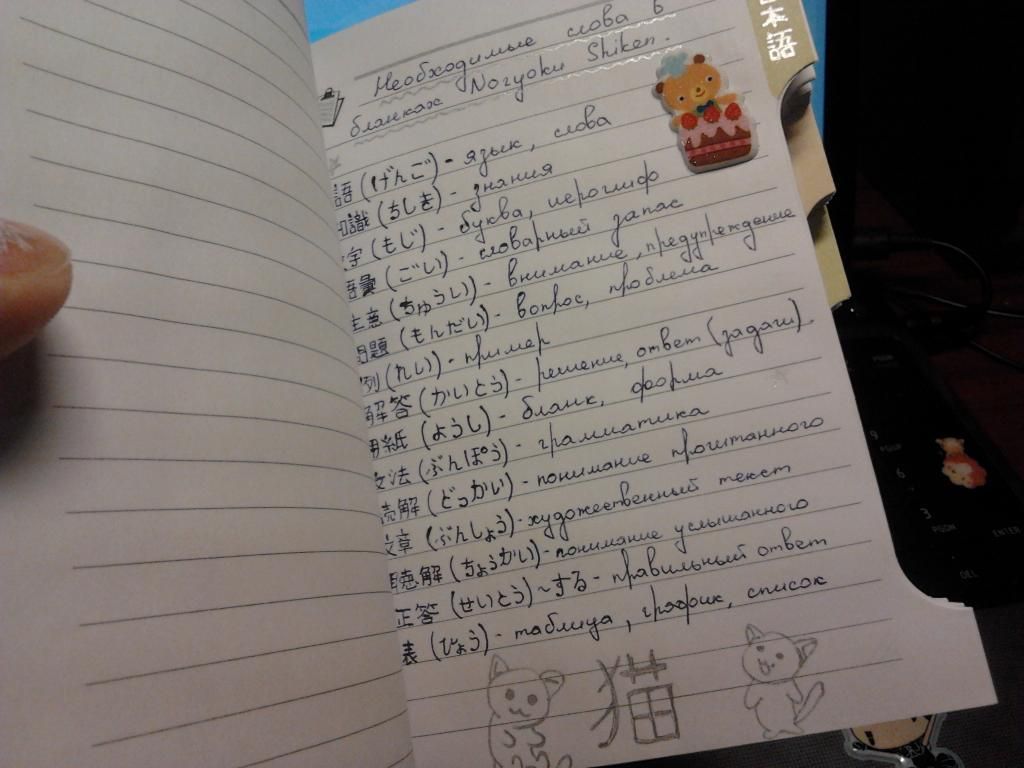 本語
Необходимые слова в
бланках Noryoku Shiken.
語 (げんご) - язык, слова
知識 (ちしき) - знания
字 (もじ) - буква, иероглиф
語量 (ごい) - словарный запас
注意 (ちゅうい) - внимание, предупреждение
問題 (もんだい) - вопрос, проблема
例 (れい) - пример
解答 (かいとう) - решение, ответ (задачи).
用紙 (ようし) - бланк, форма
文法 (ぶんぽう) - грамматика
読解 (どっかい) - понимание прочитанного
文章 (ぶんしょう) - художественный текст
聴解 (ちょうかい) - понимание услышанного
正答 (せいとう) ~する - правильный ответ
表 (ひょう) - таблица, график, список
猫
9
PGUP
6
3
PGDN
ENTER
DEL